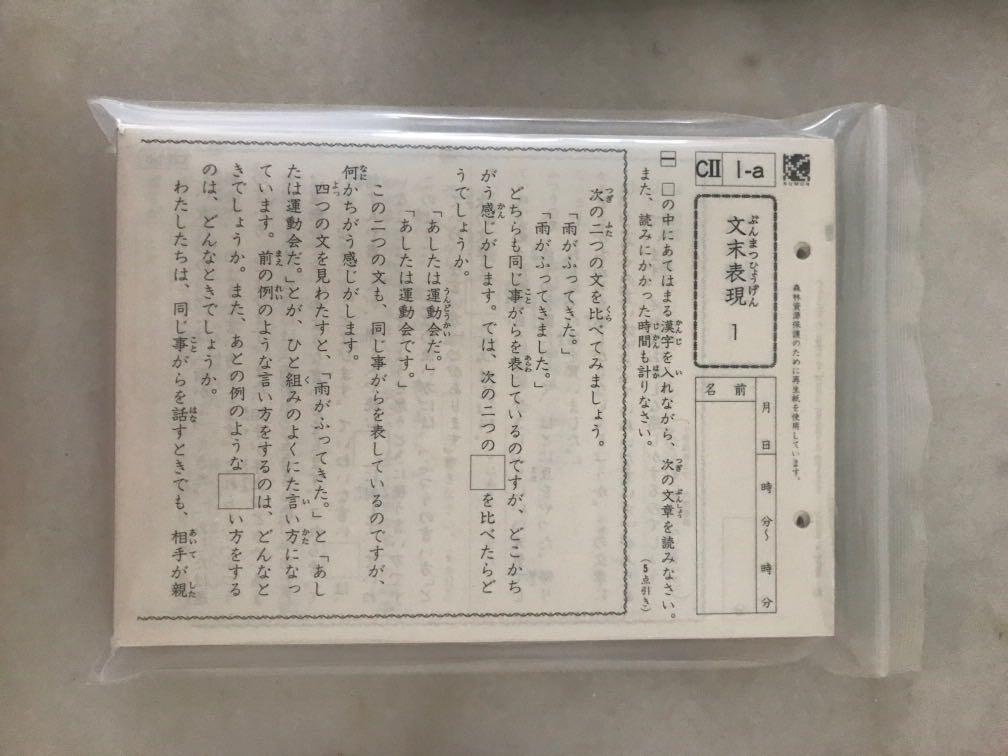 KUMON
CⅡ 1-a
文末表現 1
ぶんまつひょうげん
月 日 時 分〜 時 分
名前
森林資源保護のために再生紙を使用しています。
一 □の中にあてはまる漢字を入れながら、次の文章を読みなさい。
また、読みにかかった時間も計りなさい。
(5点引き)
次の二つの文を比べてみましょう。
「雨がふってきた。」
「雨がふってきました。」
どちらも同じ事がらを表しているのですが、どこかち
がう感じがします。では、次の二つの□を比べたらど
うでしょうか。
「あしたは運動会だ。」
「あしたは運動会です。」
この二つの文も、同じ事がらを表しているのですが、
何かちがう感じがします。
四つの文を見わたすと、「雨がふってきた。」と「あし
たは運動会だ。」とが、ひと組みのよくにた言い方になっ
ています。前の例のような言い方をするのは、どんなと
きでしょうか。また、あとの例のような□い方をする
のは、どんなときでしょうか。
わたしたちは、同じ事がらを話すときでも、相手が親